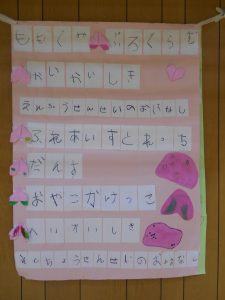 ももぐみ ぷろぐらむ
かいかいしき
えんちょうせんせいのおはなし
ふれあいすとれっち
だんす
おやこかけっこ
へいかいしき
えんちょうせんせいのおはなし